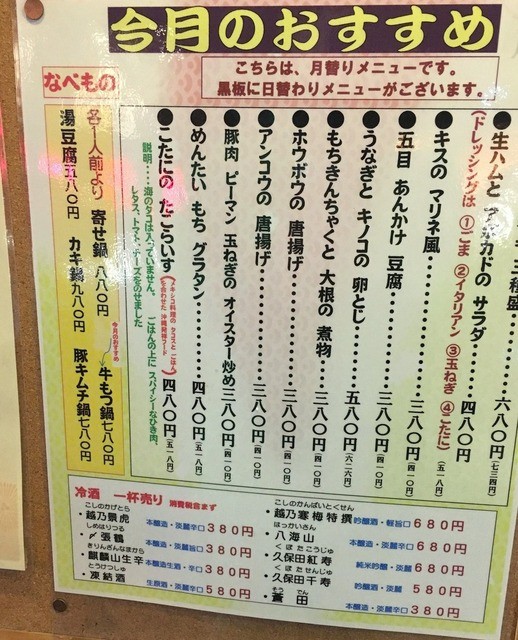 今月のおすすめ
こちらは、月替りメニューです。
黒板に日替わりメニューがございます。
三種盛 ……… 六八〇円(七三四円)
●生ハムと アボカドの サラダ ……… 四八〇円(五一八円)
(ドレッシングは ①ごま ②イタリアン ③玉ねぎ ④こたに)
●キスの マリネ風 ……… 四八〇円(五一八円)
●五目 あんかけ 豆腐 ……… 三八〇円(四一〇円)
●うなぎと キノコの 卵とじ ……… 五八〇円(六二六円)
●もちきんちゃくと 大根の 煮物 三八〇円(四一〇円)
●ホウボウの 唐揚げ ……… 三八〇円(四一〇円)
●アンコウの 唐揚げ ……… 三八〇円(四一〇円)
●豚肉 ピーマン 玉ねぎの オイスター炒め 三八〇円(四一〇円)
●めんたい もち グラタン ……… 四八〇円(五一八円)
●こたにの たこらいす (メキシコ料理の タコスと ごはんを合わせた 沖縄発祥フード) 四八〇円(五一八円)
説明‥‥海のタコは入っていません。 ごはんの上に スパイシーなひき肉、
レタス、トマト、チーズをのせました
なべもの
各1人前より 寄せ鍋 八八〇円
今月のおすすめ
牛もつ鍋七八〇円
湯豆腐五八〇円 カキ鍋九八〇円 豚キムチ鍋七八〇円
冷酒 一杯売り 消費税含まず
こしのかげとら
・越乃景虎 本醸造・淡麗辛口 380円
しめはりつる
・〆張鶴 本醸造・淡麗旨口 380円
きりんざんなまから
・麒麟山生辛 本醸造生酒・辛口 380円
とうけつしゅ
・凍結酒 生原酒・淡麗辛口 580円
こしのかんばいとくせん
・越乃寒梅特撰 吟醸酒・軽旨口 680円
はっかいさん
・八海山 本醸造・淡麗辛口 680円
くぼたこうじゅ
・久保田紅寿 純米吟醸・淡麗 680円
くぼたせんじゅ
・久保田千寿 吟醸酒・淡麗 580円
でん
田 本醸造・淡麗辛口 380円